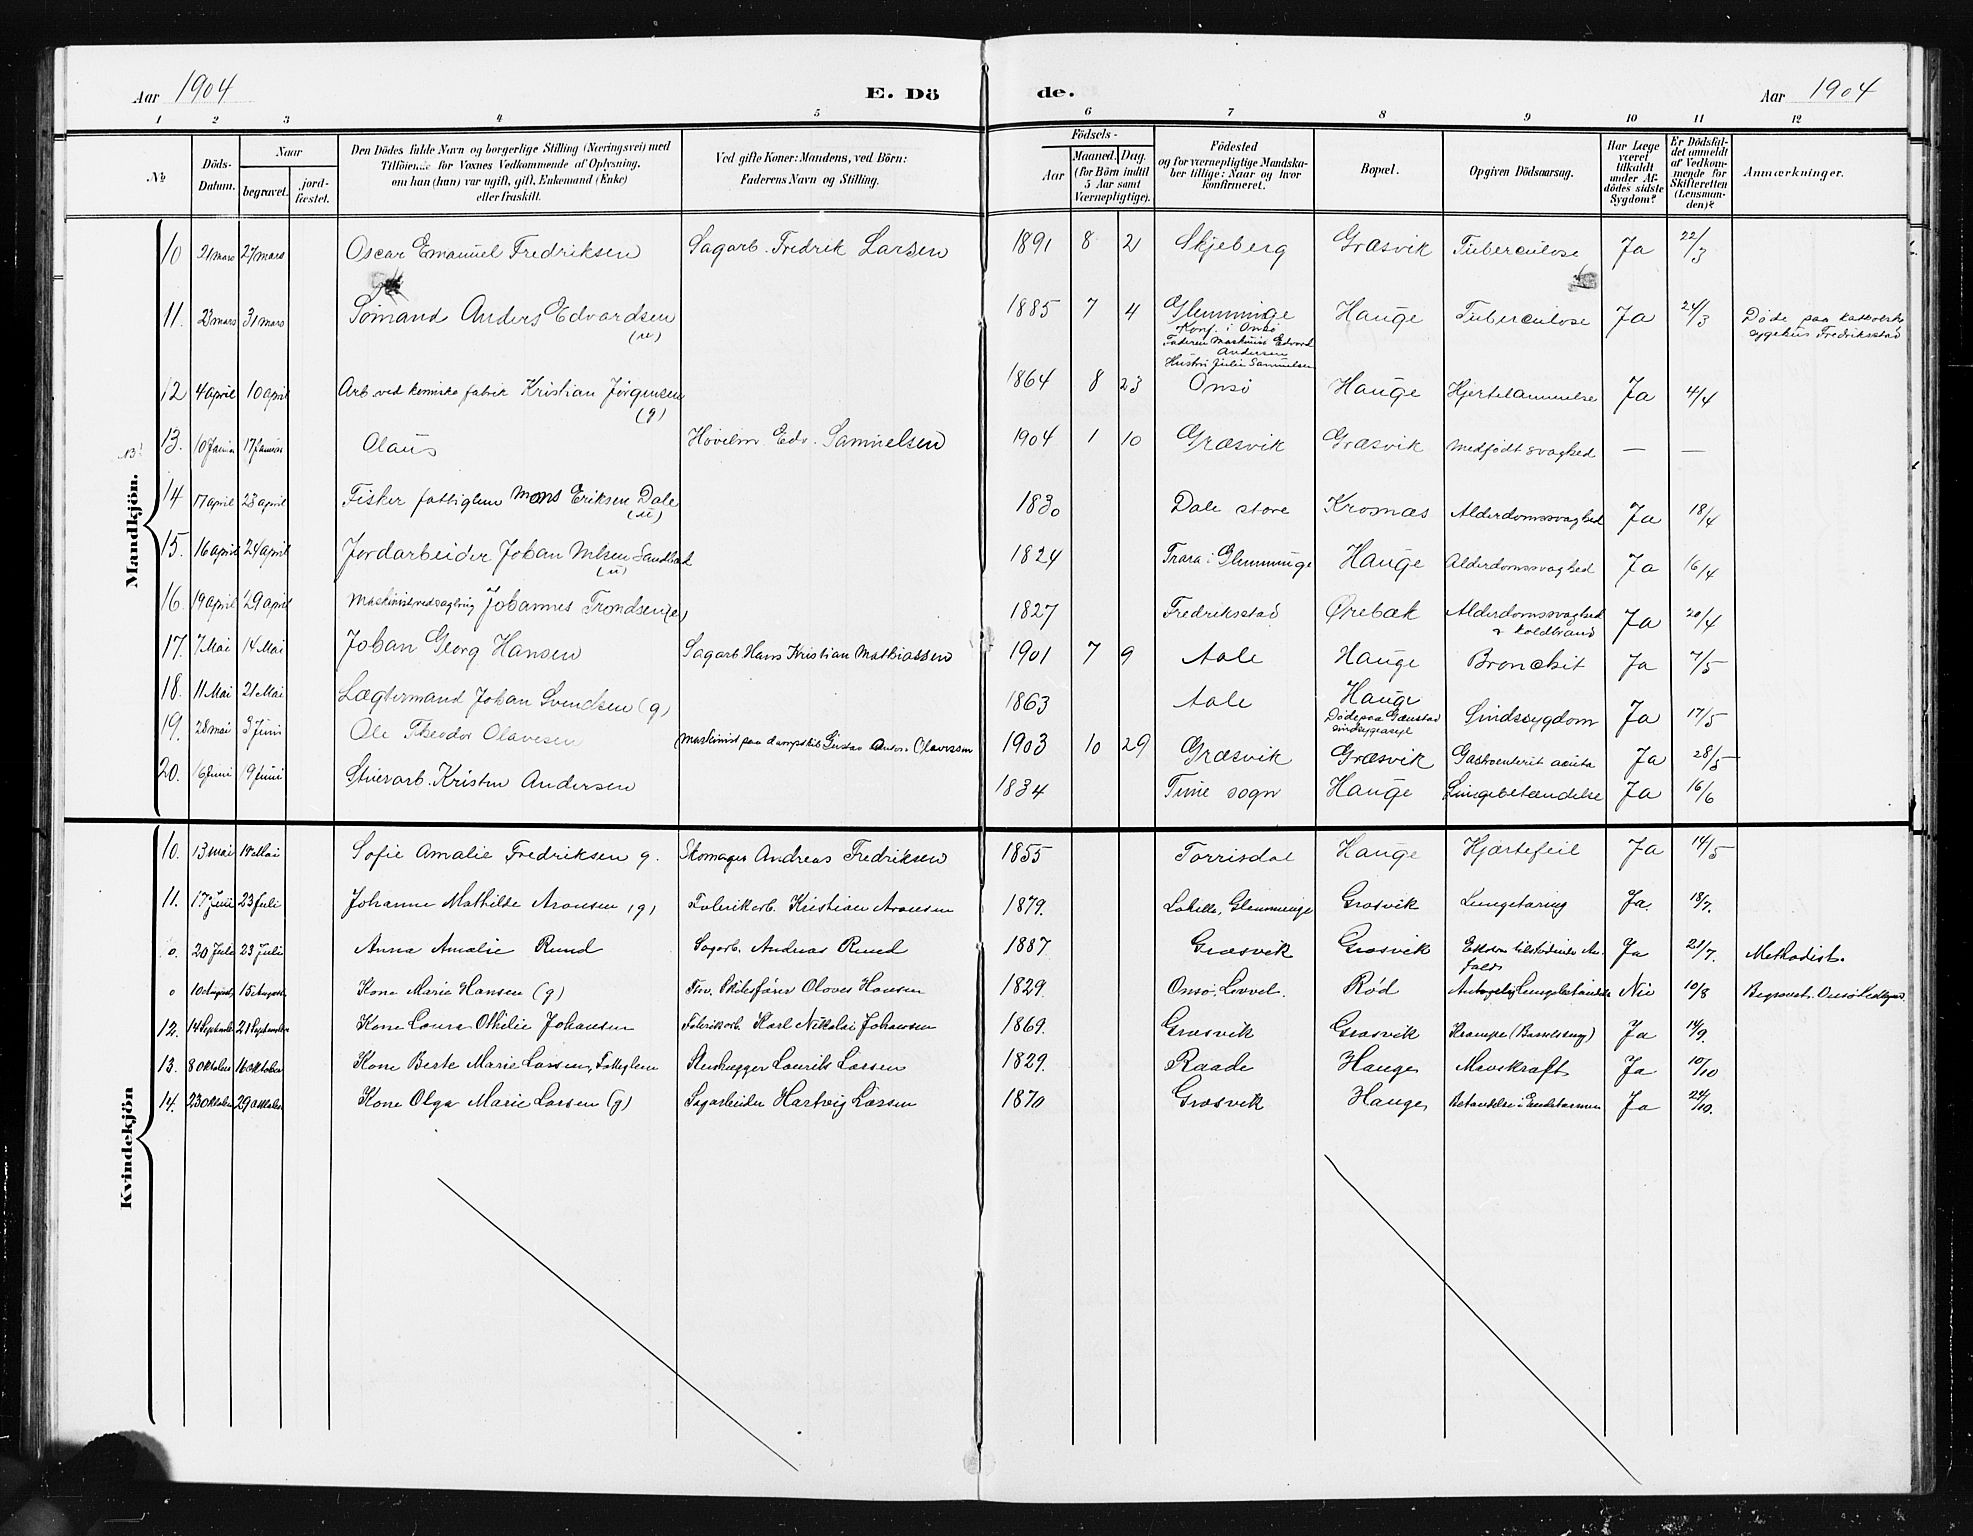 Aar 1904 E. Dö de. Aar 1904
1 2 3 4 5 6 7 8 9 10 11 12
No
Döds-Datum.
Naar
begravet.
jord-fæstet.
Den Dödes fulde Navn og borgerlige Stilling (Næringsvei) med
Tilföiende for Voxnes Vedkommende af Oplysning,
om han (hun) var ugift, gift, Enkemand (Enke)
eller fraskilt.
Ved gifte Koner: Mandens, ved Börn:
Faderens Navn og Stilling.
Födsels-
Aar
Maaned. Dag.
(for Börn indtil
5 Aar samt
Værnepligtige).
Födested
og for værnepligtige Mandska-
ber tillige: Naar og hvor
konfirmeret.
Bopæl.
Opgiven Dödsaarsag.
Har Læge
været
tilkaldt
under Af-
dödes sidste
Sygdom?
Er Dödsfal-
det anmeldt
af Vedkom-
mende for
Skifteretten
(Lensman-
den)?
Anmærkninger.
Mandkjön.
10 21 mars 27 mars Oscar Emanuel Fredriksen Sagarb. Fredrik Larsen 1891 8 21 Skjeberg Græsvik Tuberculose Ja 22/3
11. 23 mars 31 mars Sömand Anders Edvardsen (u) 1885 7 4 Glemminge Hauge Tuberculose Ja 24/3 Döde paa katholsk
Konf. i Onsö sygehus Fredriksstad
Faderen Maskinist Edvard
Andersen
Hustru Julie Samuelsen
12 4 april 10 april Arb. ved kemiske fabrik Kristian Jörgensen (g) 1864 8 23 Onsö Hauge Hjertelammelse Ja 4/4
NB! 13. 10 Januar 17 Januar Olaus Hövelm. Edv. Samuelsen 1904 1 10 Græsvik Græsvik Medfödt svaghed — —
14 17 april 23 april Fisker fattiglem Mons Eriksen Dale (u) 1830 Dale store Krosnæs Alderdomssvaghed Ja 18/4
15. 16 april 24 april Jordarbeider Johan Nilsen Sandbæk (u) 1824 Trara i Glemminge Hauge Alderdomssvaghed Ja 16/4
16. 19 april 29 april Maskinist ved sagbrug Johannes Trondsen 1827 Fredriksstad Ørebæk Alderdomssvaghed Ja 20/4
& Koldbrand
17. 7 Mai 14 Mai Johan Georg Hansen Sagarb. Hans Kristian Mathiassen 1901 7 9 Aale Hauge Bronchit Ja 7/5
18. 11 Mai 21 Mai Lægtermand Johan Svendsen (g) 1863 Aale Hauge Sindssygdom Ja 17/5
Döde paa Gaustad
sindsygeasyl
19. 28 mai 3 Juni Ole Theodor Olavesen Maskinist paa dampskib Gustav Anton Olavessen 1903 10 29 Græsvik Græsvik Gastroenterit acuta Ja 28/5
20. 6 Juni 9 Juni Stuerarb. Kristen Andersen 1834 Tune sogn Hauge Lungebetændelse Ja 16/6
Kvindekjön
10. 13 mai 18 Mai Sofie Amalie Fredriksen g. Skomager Andreas Fredriksen 1855 Torrisdal Hauge Hjærtefeil Ja 14/5
11. 17 Juli 23 Juli Johanne Mathilde Aronsen (g) Fabrikarb. Kristian Aronsen 1879. Lahelle, Glemminge Græsvik Lungetæring Ja. 18/7.
0. 20 Juli 23 Juli Anna Amalie Rund Sagarb. Andreas Rund 1887 Græsvik Græsvik Ja 21/7. Methodist.
0 10 August 15 August Kone Marie Hansen (g) Fhv. Skibsförer Olaves Hansen 1829. Onsö, Rød Lungebetændelse Nei 10/8 Begravet
12. 14 September 21 September Kone Laura Othilie Johansen Fabrikarb. Karl Nikolai Johansen 1869. Græsvik Græsvik Krampe (Barselseng) Ja 14/9.
13. 8 Oktober 16 Oktober Kone Beate Marie Larsen, Fattiglem Stenhugger Laurits Larsen 1829. Raade Hauge Mavekræft Ja 10/10
14. 23 Oktober 29 Oktober Kone Olga Marie Larsen (g) Sagarbeider Hartvig Larsen 1870 Græsvik Hauge Ja 24/10.